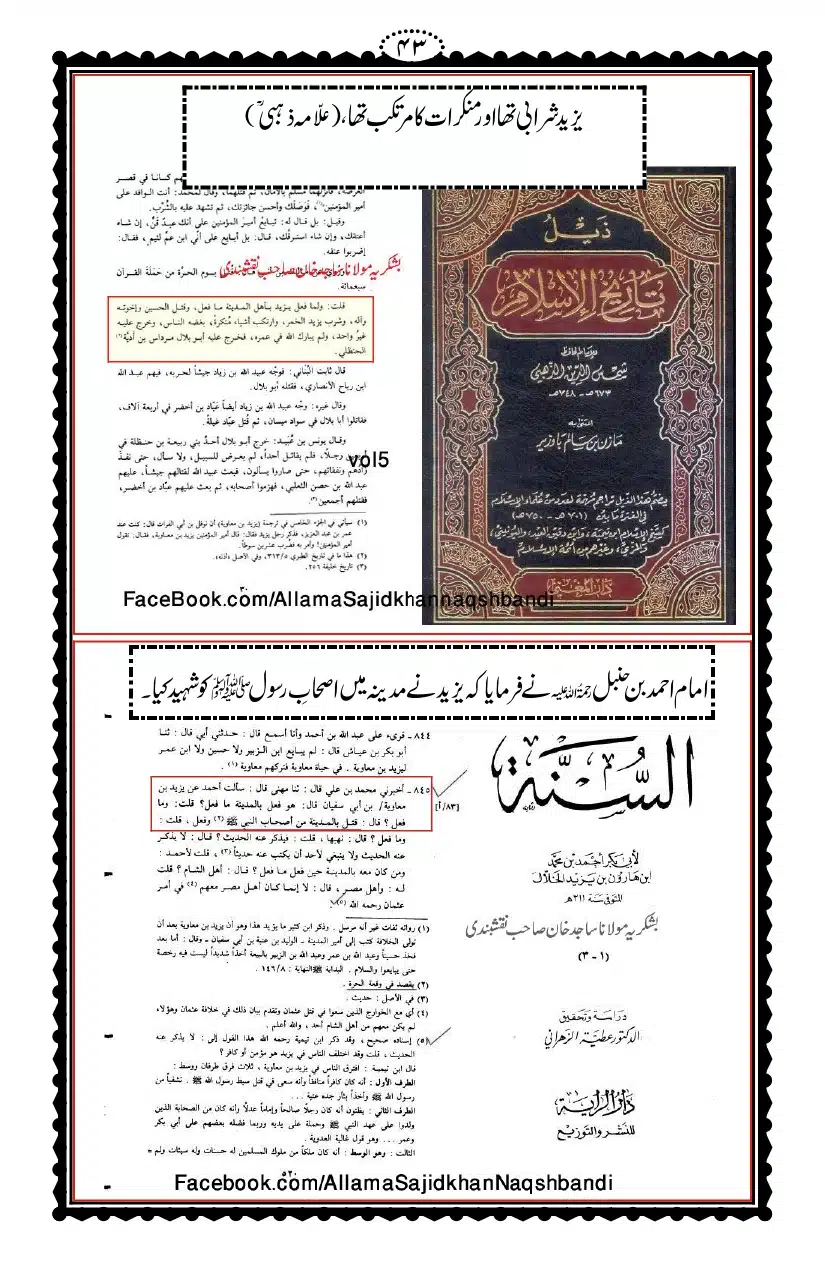 ۴۳
یزید شرابی تھا اور منکرات کا مرتکب تھا، (علّامہ ذہبیؒ)
أمير المؤمنين(١)، فوصلك وأحسن جائزتك، ثم تشهد عليه بالشُّرْب.
وقيل: بل قال له: تبايع أمير المؤمنين على أنك عبدٌ قِنٌّ، إن شاء
أعتقك، وإن شاء استرقّك، قال: بل أبايع على أني ابن عمٍّ لئيم، فقال:
إضربوا عنقه.
يوم الحرّة من حَمَلَة القرآن
سبعمائة.
بشکریہ مولانا ساجد خان صاحب نقشبندی
قلت: ولما فعل يزيد بأهل المدينة ما فعل، وقتل الحسين وإخوته
وآله، وشرب يزيد الخمر، وارتكب أشياء منكرة، بغضه الناس، وخرج عليه
غير واحد، ولم يبارك الله في عمره، فخرج عليه أبو بلال مرداس بن أديّة(٢)
الحنظلي.
قال ثابت البُناني: فوجّه عبيد الله بن زياد جيشاً لحربه، فيهم عبد الله
ابن رباح الأنصاري، فقتله أبو بلال.
وقال غيره: وجّه عبيد الله بن زياد أيضاً عبّاد بن أخضر في أربعة آلاف،
فقاتلوا أبا بلال في سواد ميسان، ثم قُتل عبّاد غيلةً.
وقال يونس بن عُبيد: خرج أبو بلال أحدُ بني ربيعة بن حنظلة في
رجلاً، فلم يقاتل أحداً، لم يعرض للسبيل، ولا سأل، حتى نفذ
زادهم ونفقاتهم، حتى صاروا يسألون، فبعث عبيد الله لقتالهم جيشاً، عليهم
عبد الله بن حصن الثعلبي، فهزموا أصحابه، ثم بعث عليهم عبّاد بن أخضر،
فقتلهم أجمعين(٣).
vol5
(١) سيأتي في الجزء الخامس في ترجمة (يزيد بن معاوية) أن نوفل بن أبي الفرات قال: كنت عند
عمر بن عبد العزيز، فذكر رجل يزيد فقال: قال أمير المؤمنين يزيد بن معاوية، فقال: تقول
أمير المؤمنين! وأمر به فضُرب عشرين سوطاً.
(٢) هذا ما في تاريخ الطبري ٣١٣/٥، وفي الأصل «أذنه».
(٣) تاريخ خليفة ٢٥٦.
٣٠
ذيل
تاريخ الإسلام
للإمام الحافظ
شمس الدين الذهبي
٦٧٣هـ - ٧٤٨هـ
اعتنى به
مازن بن سالم باوزير
يضم هذا الذيل تراجم شريفة لعدد من علماء الإسلام
في الفترة ما بين (٧٠١هـ - ٧٥٠هـ)
كشيخ الإسلام ابن تيمية، وابن دقيق العيد، واليونيني،
والمزي، وغيرهم من أئمة الإسلام
دار المغني
FaceBook.com/AllamaSajidkhannaqshbandi
امام احمد بن حنبل رحمۃ اللہ علیہ نے فرمایا کہ یزید نے مدینہ میں اصحابِ رسول ﷺ کو شہید کیا۔
٨٤٤ - قرىء على عبد الله بن أحمد وأنا أسمع قال : حدثني أبي قال : ثنا
أبو بكر بن عياش قال : لم يبايع ابن الزبير ولا حسين ولا ابن عمر
ليزيد بن معاوية . في حياة معاوية فتركهم معاوية (١) .
٨٤٥ - أخبرني محمد بن علي قال : ثنا مهنى قال : سألت أحمد عن يزيد بن
معاوية/ بن أبي سفيان قال: هو فعل بالمدينة ما فعل؟ قلت: وما
[٨٣/أ]
فعل ؟ قال : قتل بالمدينة من أصحاب النبي ﷺ (٢) وفعل ، قلت :
وما فعل ؟ قال : نهبها ، قلت : فيذكر عنه الحديث ؟ قال : لا يذكر
عنه الحديث ولا ينبغي لأحد أن يكتب عنه حديثاً (٣) ، قلت لأحمد :
ومن كان معه بالمدينة حين فعل ما فعل ؟ قال : أهل الشام ؟ قلت
له : وأهل مصر ، قال : لا إنما كان أهل مصر معهم (٤) في أمر
عثمان رحمه الله (٥) .
(١) رواته ثقات غير أنه مرسل . وذكر ابن كثير ما يؤيد هذا وهو أن يزيد بن معاوية بعد أن
تولى الخلافة كتب إلى أمير المدينة - الوليد بن عتبة بن أبي سفيان - وقال : أما بعد
فخذ حسيناً وعبد الله بن عمر وعبد الله بن الزبير بالبيعة أخذاً شديداً ليست فيه رخصة
حتى يبايعوا والسلام . البداية والنهاية : ١٤٦/٨ .
(٢) يقصد في وقعة الحرة .
(٣) في الأصل : حديث .
(٤) أي مع الخوارج الذين سعوا في قتل عثمان وتقدم بيان ذلك في خلافة عثمان وهؤلاء
لم يكن معهم من أهل الشام أحد ، والله أعلم .
(٥) إسناده صحيح ، وقد ذكر ابن تيمية رحمه الله هذا القول إلى : لا يذكر عنه
الحديث ، قلت وقد اختلف الناس في يزيد هل هو مؤمن أو كافر ؟
قال ابن تيمية : افترق الناس في يزيد بن معاوية ، ثلاث فرق طرفان ووسط :
الطرف الأول : أنه كان كافراً منافقاً وأنه سعى في قتل سبط رسول الله ﷺ . تشفياً من
رسول الله ﷺ وأخذاً بثأر جده عتبة ...
الطرف الثاني : يظنون أنه كان رجلاً صالحاً وإماماً عدلاً وأنه كان من الصحابة الذين
ولدوا على عهد النبي ﷺ وحمله على يديه وربما فضله بعضهم على أبي بكر
وعمر ... وهو قول غالية العدوية .
الثالث : وهو الوسط : أنه كان ملكاً من ملوك المسلمين له حسنات وله سيئات ولم =
٥٢٠
السُّنَّة
لأبي بكر أحمد بن محمد
ابن هارون بن يزيد الخلال
المتوفى سنة ٣١١هـ
بشکریہ مولانا ساجد خان صاحب نقشبندی
(١ - ٣)
دراسة وتحقيق
الدكتور عطية الزهراني
دار الراية
للنشر والتوزيع
Facebook.com/AllamaSajidkhanNaqshbandi